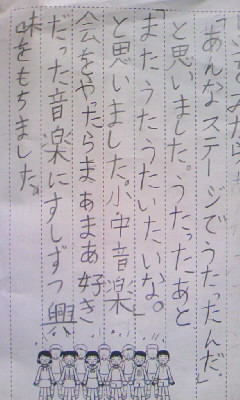 「あんなステージでうたったんだ。」
と思いました。うたったあと
「またうたいたいな。」
と思いました。小中音楽
会をやったらまあまあ好き
だった音楽にすしずつ興
味をもちました。